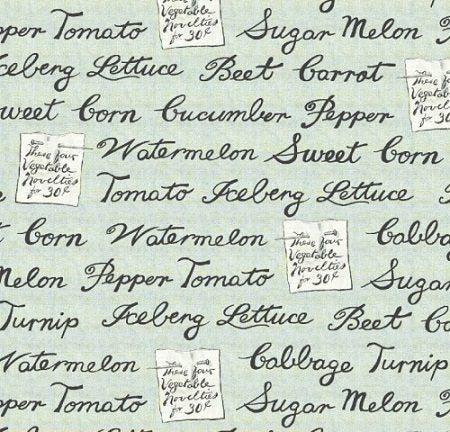 pper Tomato Vegetable Novelties for 30¢ Sugar Melon P
ceberg Lettuce Beet Carrot These four Vegetable Novelties for 30¢
weet Corn Cucumber Pepper
These four Vegetable Novelties for 30¢ Watermelon Sweet Corn
Tomato Iceberg Lettuce
t Corn Watermelon These four Vegetable Novelties for 30¢ Cabbag
Melon Pepper Tomato Sugar
Turnip Iceberg Lettuce Beet Ca
Watermelon These four Vegetable Novelties for 30¢ Cabbage Turnip
pper Tomato Sugar Melon P